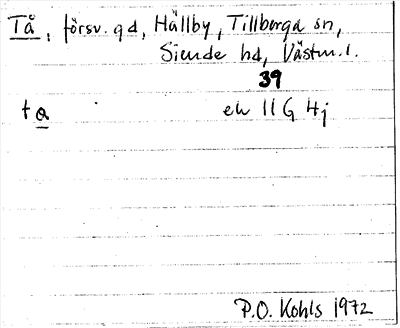 Tå, försv. gd, Hällby, Tillberga sn,
Siende hd, Västm. l.
39
ta ek 11 G 4j
P.O. Kohls 1972